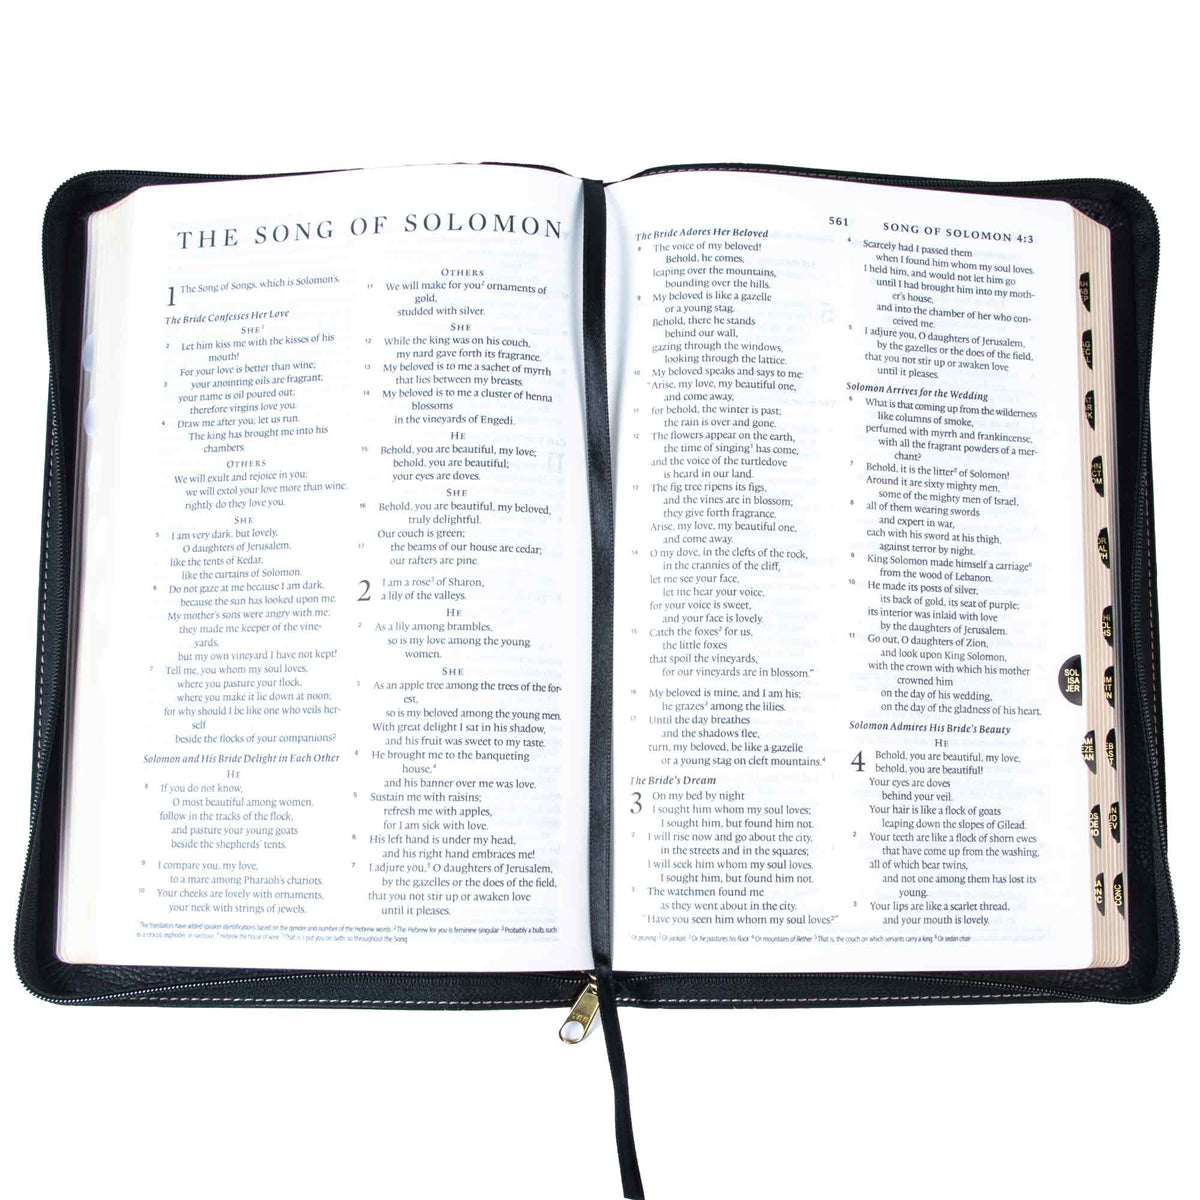 THE SONG OF SOLOMON
1 The Song of Songs, which is Solomon's.
The Bride Confesses Her Love
SHE¹
2 Let him kiss me with the kisses of his
mouth!
For your love is better than wine;
3 your anointing oils are fragrant;
your name is oil poured out;
therefore virgins love you.
4 Draw me after you; let us run.
The king has brought me into his
chambers.
OTHERS
We will exult and rejoice in you;
we will extol your love more than wine;
rightly do they love you.
SHE
5 I am very dark, but lovely,
O daughters of Jerusalem,
like the tents of Kedar,
like the curtains of Solomon.
6 Do not gaze at me because I am dark,
because the sun has looked upon me.
My mother's sons were angry with me;
they made me keeper of the vine-
yards,
but my own vineyard I have not kept!
7 Tell me, you whom my soul loves,
where you pasture your flock,
where you make it lie down at noon;
for why should I be like one who veils her-
self
beside the flocks of your companions?
Solomon and His Bride Delight in Each Other
HE
8 If you do not know,
O most beautiful among women,
follow in the tracks of the flock,
and pasture your young goats
beside the shepherds' tents.
9 I compare you, my love,
to a mare among Pharaoh's chariots.
10 Your cheeks are lovely with ornaments,
your neck with strings of jewels.
OTHERS
11 We will make for you² ornaments of
gold,
studded with silver.
SHE
12 While the king was on his couch,
my nard gave forth its fragrance.
13 My beloved is to me a sachet of myrrh
that lies between my breasts.
14 My beloved is to me a cluster of henna
blossoms
in the vineyards of Engedi.
HE
15 Behold, you are beautiful, my love;
behold, you are beautiful;
your eyes are doves.
SHE
16 Behold, you are beautiful, my beloved,
truly delightful.
Our couch is green;
17 the beams of our house are cedar;
our rafters are pine.
2 I am a rose³ of Sharon,
a lily of the valleys.
HE
2 As a lily among brambles,
so is my love among the young
women.
SHE
3 As an apple tree among the trees of the for-
est,
so is my beloved among the young men.
With great delight I sat in his shadow,
and his fruit was sweet to my taste.
4 He brought me to the banqueting
house,⁴
and his banner over me was love.
5 Sustain me with raisins;
refresh me with apples,
for I am sick with love.
6 His left hand is under my head,
and his right hand embraces me!
7 I adjure you,⁵ O daughters of Jerusalem,
by the gazelles or the does of the field,
that you not stir up or awaken love
until it pleases.
¹ The translators have added speaker identifications based on the gender and number of the Hebrew words ² The Hebrew for you is feminine singular ³ Probably a bulb, such
as a crocus, asphodel, or narcissus ⁴ Hebrew the house of wine ⁵ That is, I put you on oath; so throughout the Song
561 SONG OF SOLOMON 4:3
The Bride Adores Her Beloved
8 The voice of my beloved!
Behold, he comes,
leaping over the mountains,
bounding over the hills.
9 My beloved is like a gazelle
or a young stag.
Behold, there he stands
behind our wall,
gazing through the windows,
looking through the lattice.
10 My beloved speaks and says to me:
"Arise, my love, my beautiful one,
and come away,
11 for behold, the winter is past;
the rain is over and gone.
12 The flowers appear on the earth,
the time of singing¹ has come,
and the voice of the turtledove
is heard in our land.
13 The fig tree ripens its figs,
and the vines are in blossom;
they give forth fragrance.
Arise, my love, my beautiful one,
and come away.
14 O my dove, in the clefts of the rock,
in the crannies of the cliff,
let me see your face,
let me hear your voice,
for your voice is sweet,
and your face is lovely.
15 Catch the foxes² for us,
the little foxes
that spoil the vineyards,
for our vineyards are in blossom."
16 My beloved is mine, and I am his;
he grazes³ among the lilies.
17 Until the day breathes
and the shadows flee,
turn, my beloved, be like a gazelle
or a young stag on cleft mountains.⁴
The Bride's Dream
3 On my bed by night
I sought him whom my soul loves;
I sought him, but found him not.
2 I will rise now and go about the city,
in the streets and in the squares;
I will seek him whom my soul loves.
I sought him, but found him not.
3 The watchmen found me
as they went about in the city.
"Have you seen him whom my soul loves?"
4 Scarcely had I passed them
when I found him whom my soul loves.
I held him, and would not let him go
until I had brought him into my moth-
er's house,
and into the chamber of her who con-
ceived me.
5 I adjure you, O daughters of Jerusalem,
by the gazelles or the does of the field,
that you not stir up or awaken love
until it pleases.
Solomon Arrives for the Wedding
6 What is that coming up from the wilderness
like columns of smoke,
perfumed with myrrh and frankincense,
with all the fragrant powders of a mer-
chant?
7 Behold, it is the litter⁵ of Solomon!
Around it are sixty mighty men,
some of the mighty men of Israel,
8 all of them wearing swords
and expert in war,
each with his sword at his thigh,
against terror by night.
9 King Solomon made himself a carriage⁶
from the wood of Lebanon.
10 He made its posts of silver,
its back of gold, its seat of purple;
its interior was inlaid with love
by the daughters of Jerusalem.
11 Go out, O daughters of Zion,
and look upon King Solomon,
with the crown with which his mother
crowned him
on the day of his wedding,
on the day of the gladness of his heart.
Solomon Admires His Bride's Beauty
HE
4 Behold, you are beautiful, my love,
behold, you are beautiful!
Your eyes are doves
behind your veil.
Your hair is like a flock of goats
leaping down the slopes of Gilead.
2 Your teeth are like a flock of shorn ewes
that have come up from the washing,
all of which bear twins,
and not one among them has lost its
young.
3 Your lips are like a scarlet thread,
and your mouth is lovely.
Or pruning ² Or jackals ³ Or he pastures his flock ⁴ Or mountains of Bether ⁵ That is, the couch on which servants carry a king ⁶ Or sedan chair
SOL
ISA
JER
CONC